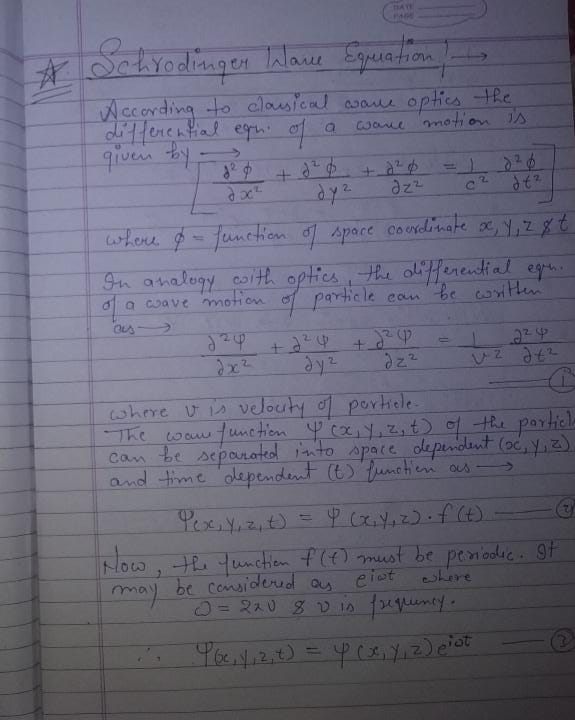 DATE
PAGE
Schrodinger Wave Equation! →
According to classical wave optics the
differential eqn. of a wave motion is
given by →
[∂²ϕ/∂x² + ∂²ϕ/∂y² + ∂²ϕ/∂z² = 1/c² ∂²ϕ/∂t²]
where ϕ = function of space coordinate x, y, z & t
In analogy with optics, the differential eqn.
of a wave motion of particle can be written
as →
∂²ψ/∂x² + ∂²ψ/∂y² + ∂²ψ/∂z² = 1/v² ∂²ψ/∂t²
— ①
where v is velocity of particle.
The wave function ψ(x, y, z, t) of the particl
can be separated into space dependent (x, y, z)
and time dependent (t) function as →
ψ(x, y, z, t) = ψ (x, y, z) · f(t) — ②
Now, the function f(t) must be periodic. It
may be considered as eiωt where
ω = 2πν & ν is frequency.
∴ ψ(x, y, z, t) = ψ (x, y, z) eiωt — ③